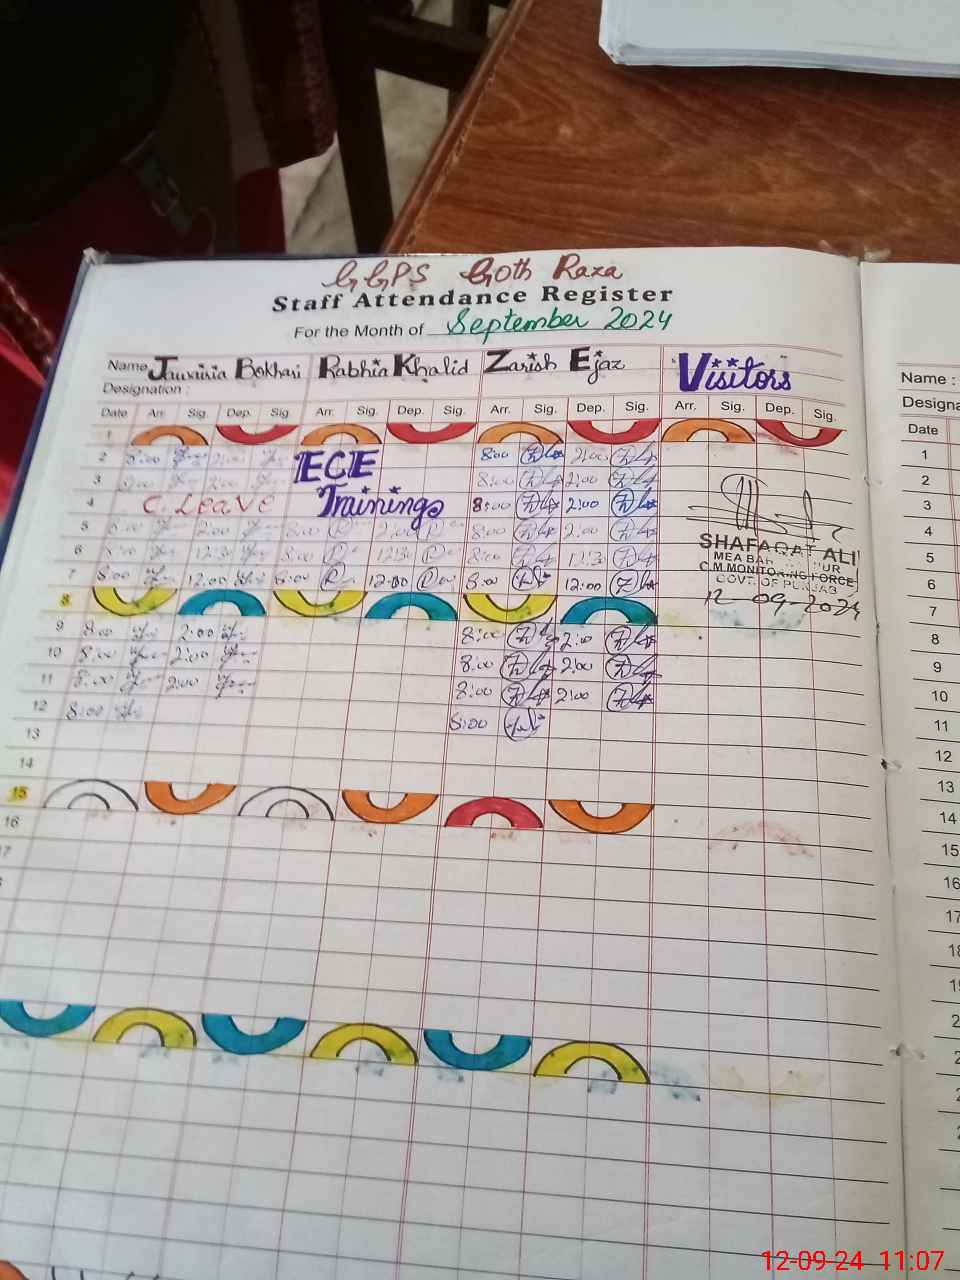 GGPS Goth Raza
Staff Attendance Register
For the Month of September 2024
Name Jauviria Bokhari Rabhia Khalid Zarish Ejaz Visitors
Designation :
Date Arr. Sig. Dep. Sig. Arr. Sig. Dep. Sig. Arr. Sig. Dep. Sig. Arr. Sig. Dep. Sig.
1
2 8:00 2:00 ECE 8:00 2:00
3 8:00 2:00 8:00 2:00
4 C. Leave Trainings 8:00 2:00
5 8:00 2:00 8:00 2:00 8:00 2:00
6 8:00 12:30 8:00 12:30 8:00 12:30
7 8:00 12:00 8:00 12:00 8:00 12:00
SHAFAQAT ALI
MEA
C.M MONITORING FORCE
GOVT. OF PUNJAB
12-09-2024
8
9 8:00 2:00 8:00 2:00
10 8:00 2:00 8:00 2:00
11 8:00 2:00 8:00 2:00
12 8:00 8:00
13
14
15
16
17
Name :
Date
1
2
3
4
5
6
7
8
9
10
11
12
13
14
15
16
17
12-09-24 11:07